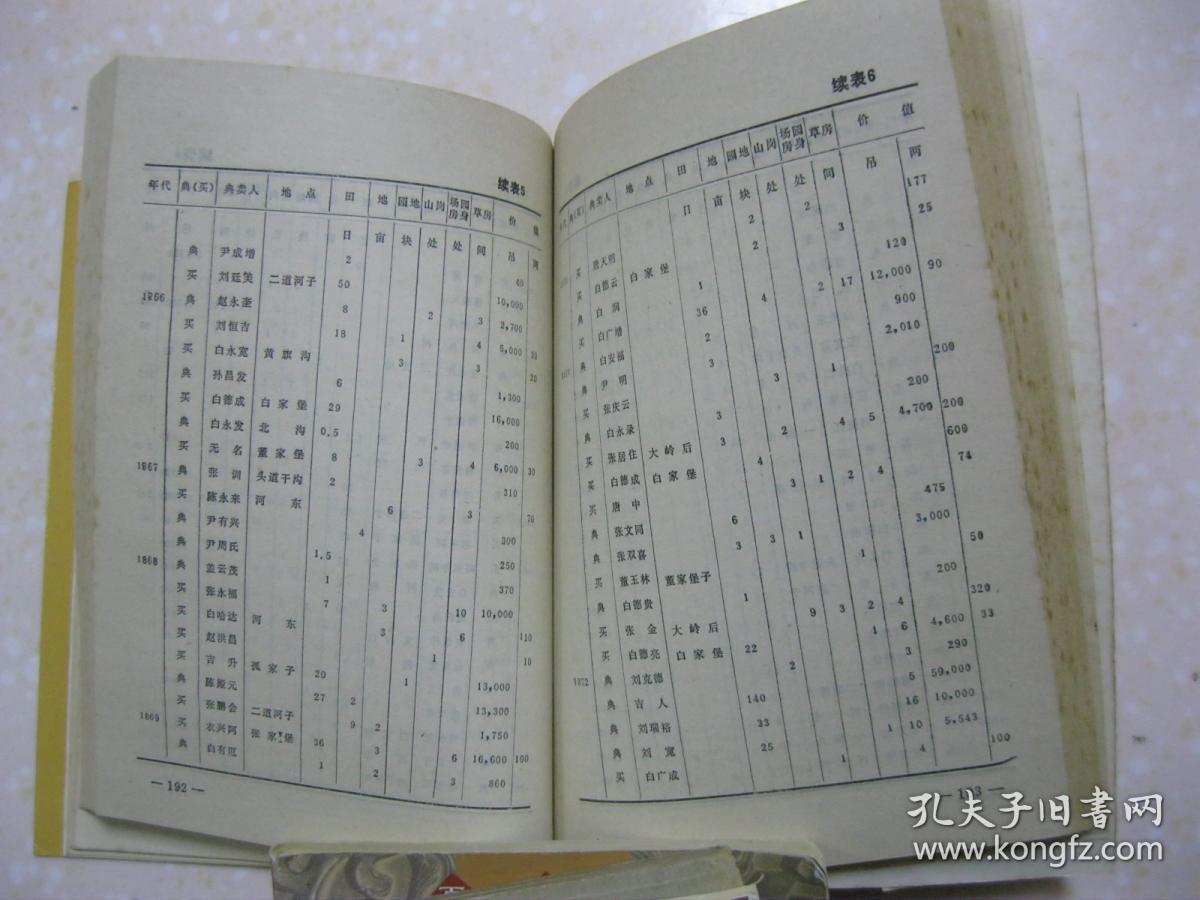 续表5
年代 典(买) 典卖人 地点 田 地 园地 山岗 场园房身 草房 价值
日 亩 块 处 处 间 吊 阿
典 尹成增 2 40
买 刘廷笑 二道河子 50 10,000
1866 典 赵永奎 8 2 3 2,700
买 刘恒吉 18 1 4 5,000 30
买 白永宽 黄旗沟 3 3 20
典 孙昌发 6 1,300
买 白德成 白家堡 29 16,000
典 白永发 北沟 0.5 200
买 无名 董家堡 8 3 4 6,000 30
1867 典 张训 头道干沟 2 310
买 陈永来 河东 6 3 70
典 尹有兴 4 300
典 尹周氏 1.5 250
1868 典 姜云茂 1 370
买 张永福 7 3 10 10,000
买 白哈达 河东 3 6 110
买 赵洪昌 1 10
买 吉升 孤家子 20 1 13,000
典 陈殿元 27 2 13,300
买 张鹏会 二道河子 9 2 1,750
1869 买 衣兴阿 张家堡 36 3 6 16,600 100
典 白有厄 1 2 3 860
— 192 —
续表6
年代 典(买) 典卖人 地点 田 地 园地 山岗 场园房身 草房 价值
日 亩 块 处 处 间 吊 阿
买 2 2 177
典 白德云 白家堡 2 3 25
典 白润 1 120
买 白广增 36 4 2 17 12,000 90
典 白安福 2 900
典 尹明 3 2,010
买 张庆云 3 1 200
典 白永录 3 200
买 张居住 大岭后 3 2 4 5 4,700 200
买 白德成 白家堡 4 600
买 唐中 3 1 2 4 74
典 张文同 6 475
典 张双喜 3 3 1 3,000
买 董玉林 董家堡子 1 50
典 白德贵 1 200
买 张金 大岭后 9 3 2 4 320
买 白德亮 白家堡 22 1 6 4,600 33
1872 典 刘克德 2 3 290
典 吉人 140 5 59,000
典 刘瑞裕 33 16 10,000
典 刘宽 25 1 10 5,543
买 白广成 1 4 100
— 193 —
孔夫子旧书网
www.kongfz.com